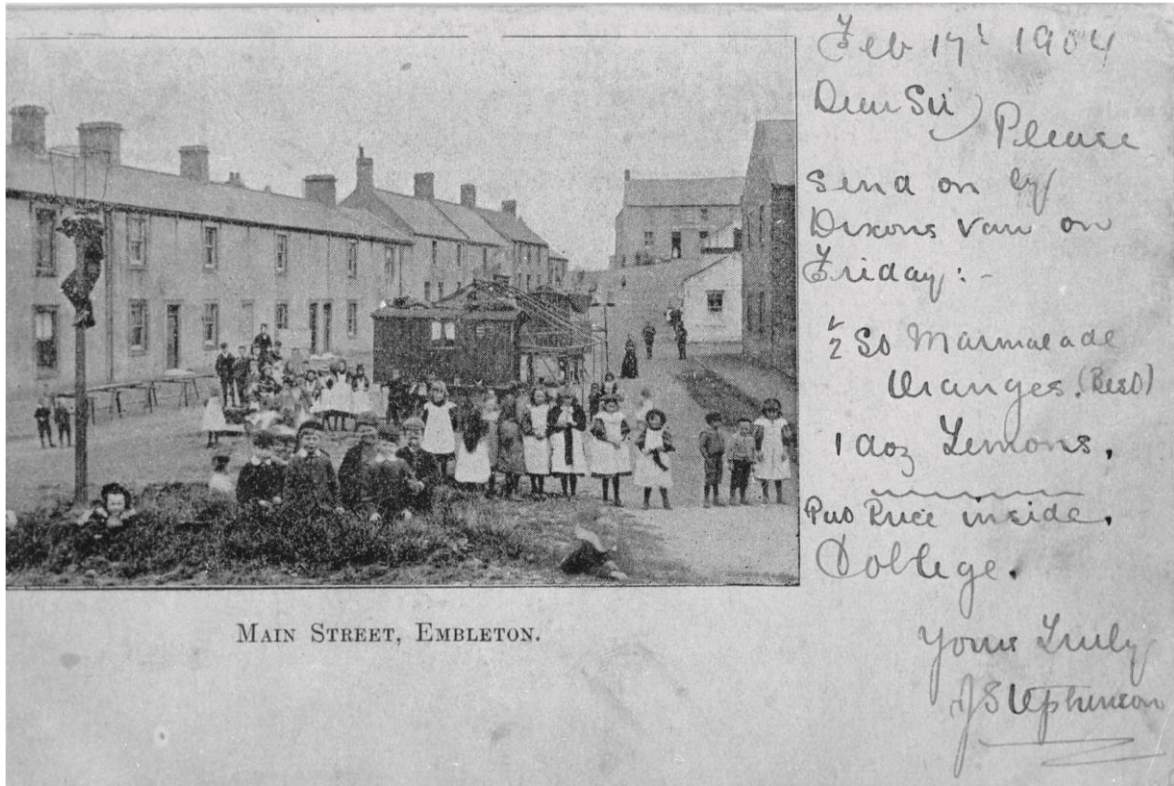 Feb 17t 1904
Dear Sir) Please
send on by
Dixons van on
Friday:-
½ So Marmalade
Oranges. (Best)
1 doz Lemons.
Put Price inside.
College.
Yours Truly
J Stephenson
MAIN STREET, EMBLETON.